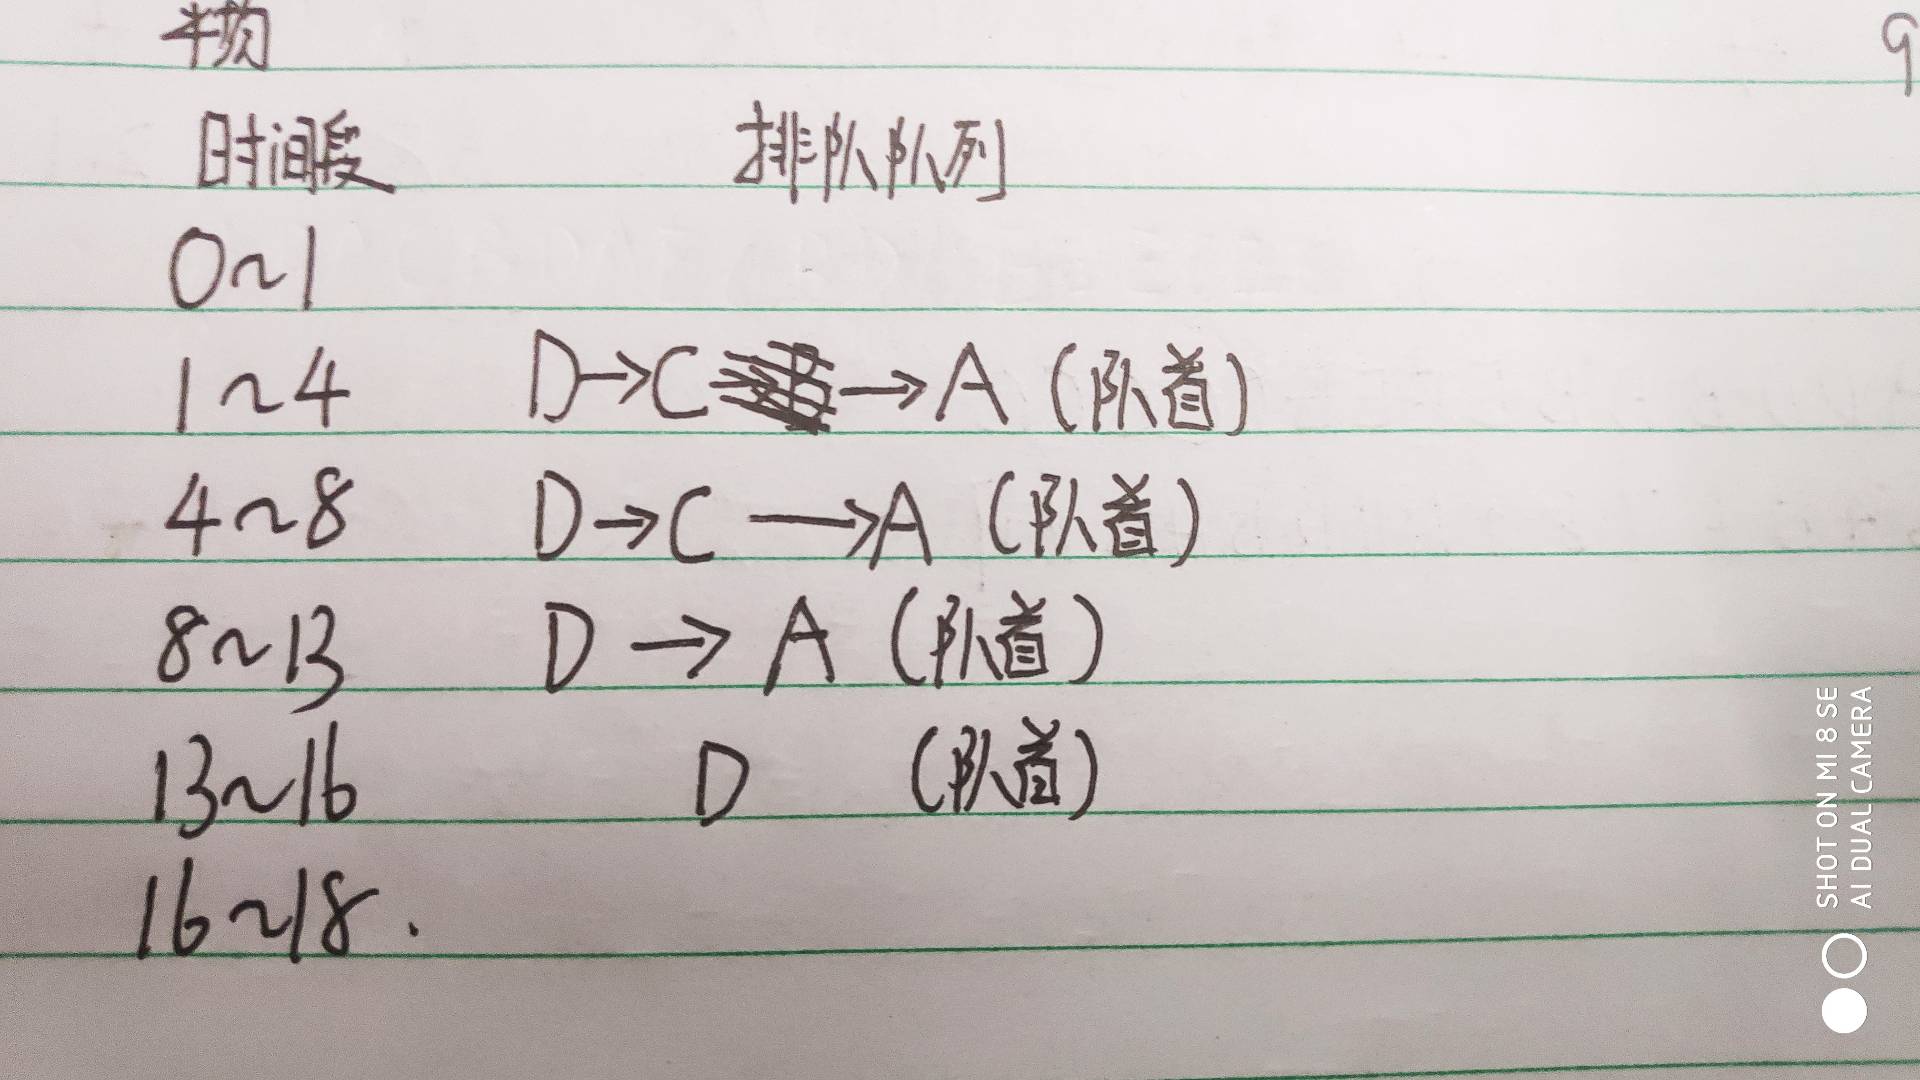 时间段 排队队列
0~1
1~4 D→C→A (队首)
4~8 D→C→A (队首)
8~13 D→A (队首)
13~16 D (队首)
16~18.
SHOT ON MI 8 SE
AI DUAL CAMERA